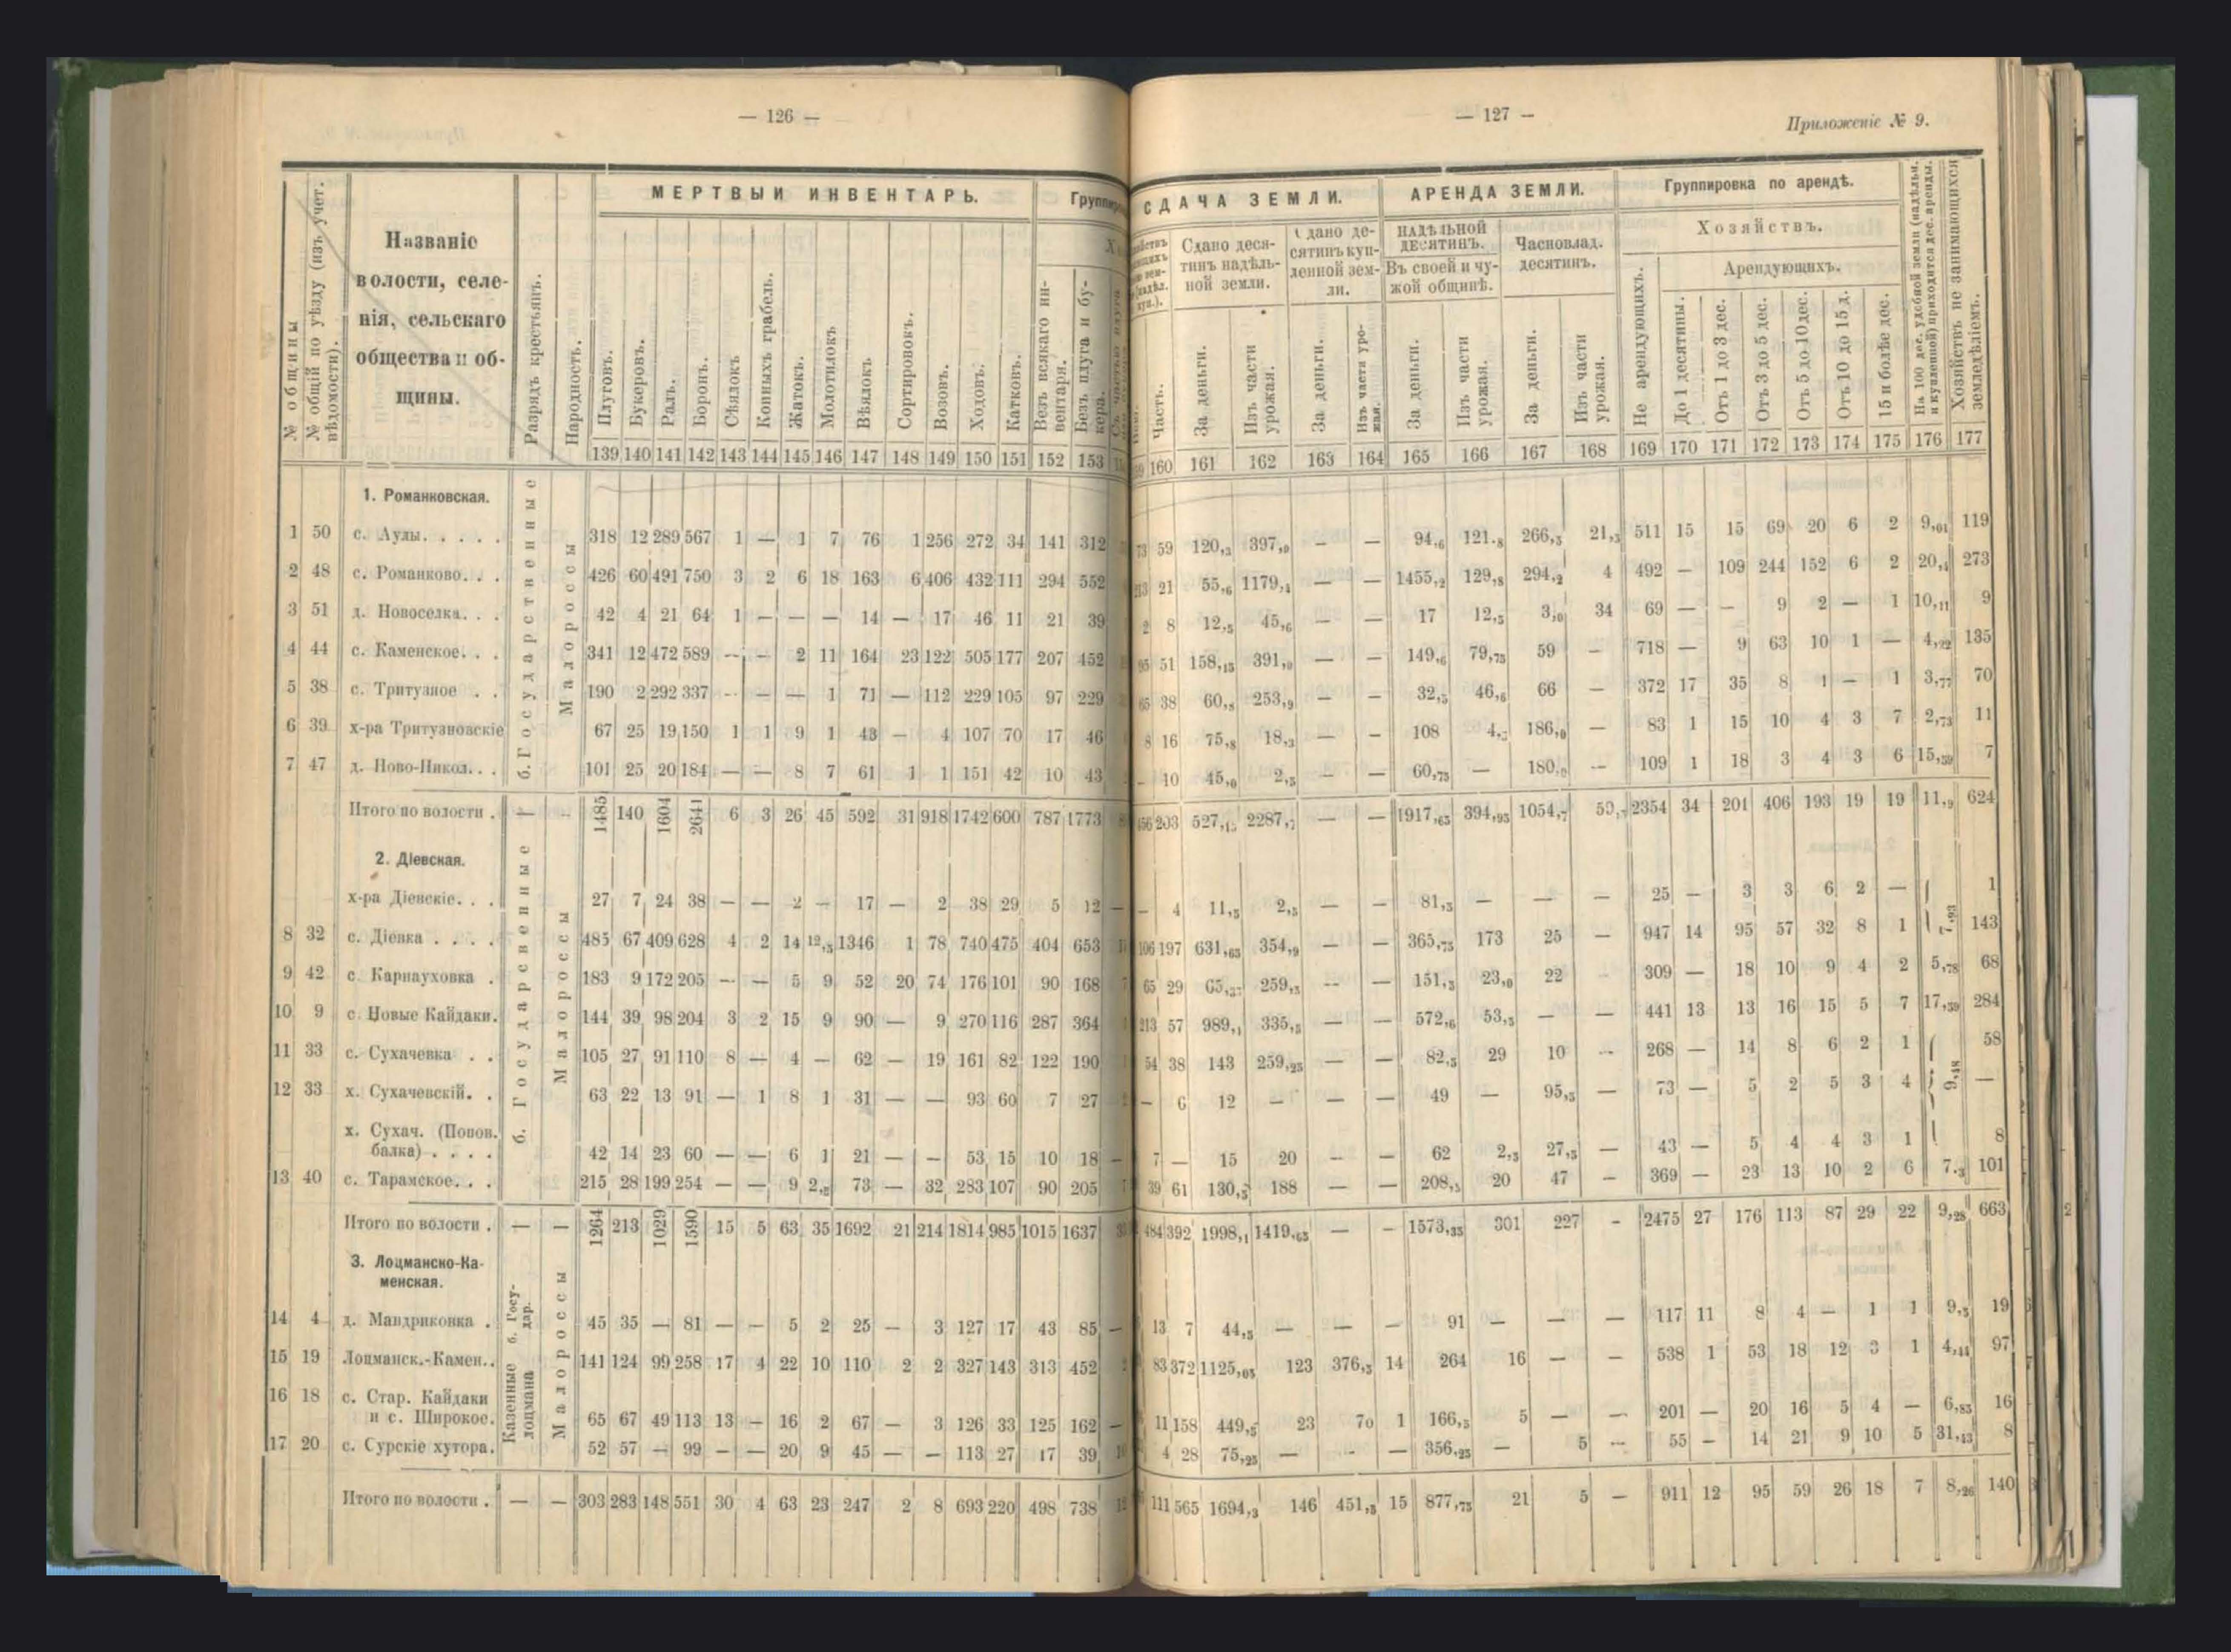 — 126 —
МЕРТВЫЙ ИНВЕНТАРЬ.
№ общины
№ общій по уѣзду (изъ учет. вѣдомости).
Названіе
волости, селе-
нія, сельскаго
общества и об-
щины.
Разрядъ крестьянъ.
Народность.
Плуговъ.
Букеровъ.
Ралъ.
Боронъ.
Сѣялокъ
Конныхъ грабель.
Жатокъ.
Молотилокъ
Вѣялокъ
Сортировокъ.
Возовъ.
Ходовъ.
Катковъ.
Безъ всякаго ин-
вентаря.
Безъ плуга и бу-
кера.
139 140 141 142 143 144 145 146 147 148 149 150 151 152 153
1. Романковская.
б. Государственные
Малороссы
1 50 с. Аулы. . . . . 318 12 289 567 1 — 1 7 76 1 256 272 34 141 312
2 48 с. Романково. . . 426 60 491 750 3 2 6 18 163 6 406 432 111 294 552
3 51 д. Новоселка. . . 42 4 21 64 1 — — — 14 — 17 46 11 21 39
4 44 с. Каменское. . . 341 12 472 589 — — 2 11 164 23 122 505 177 207 452
5 38 с. Тритузное . . 190 2 292 337 — — — 1 71 — 112 229 105 97 229
6 39 х-ра Тритузновскіе 67 25 19 150 1 1 9 1 43 — 4 107 70 17 46
7 47 д. Ново-Никол. . . 101 25 20 184 — — 8 7 61 1 1 151 42 10 43
Итого по волости . — — 1485 140 1604 2641 6 3 26 45 592 31 918 1742 600 787 1773
2. Діевская.
б. Государсвенные
Малороссы
х-ра Діевскіе. . . 27 7 24 38 — — 2 — 17 — 2 38 29 5 12 —
8 32 с. Діевка . . . . 485 67 409 628 4 2 14 12,5 1346 1 78 740 475 404 653
9 42 с. Карнауховка . 183 9 172 205 — — 5 9 52 20 74 176 101 90 168
10 9 с. Новые Кайдаки. 144 39 98 204 3 2 15 9 90 — 9 270 116 287 364
11 33 с. Сухачевка . . 105 27 91 110 8 — 4 — 62 — 19 161 82 122 190
12 33 х. Сухачевскій. . 63 22 13 91 — 1 8 1 31 — — 93 60 7 27
х. Сухач. (Попов.
балка) . . . . 42 14 23 60 — — 6 1 21 — — 53 15 10 18 —
13 40 с. Тарамское. . . 215 28 199 254 — — 9 2,5 73 — 32 283 107 90 205
Итого по волости . — — 1264 213 1029 1590 15 5 63 35 1692 21 214 1814 985 1015 1637
3. Лоцманско-Ка-
менская.
б. Госу-
дар.
Казенные
лоцмана
Малороссы
14 4 д. Мандриковка . 45 35 — 81 — — 5 2 25 — 3 127 17 43 85 —
15 19 Лоцманск.-Камен. . 141 124 99 258 17 4 22 10 110 2 2 327 143 313 452
16 18 с. Стар. Кайдаки
и с. Широкое. 65 67 49 113 13 — 16 2 67 — 3 126 33 125 162 —
17 20 с. Сурскіе хутора. 52 57 — 99 — — 20 9 45 — — 113 27 17 39
Итого по волости . — — 303 283 148 551 30 4 63 23 247 2 8 693 220 498 738
— 127 —
Приложеніе № 9.
СДАЧА ЗЕМЛИ.
АРЕНДА ЗЕМЛИ.
Группировка по арендѣ.
Часть.
Сдано деся-
тинъ надѣль-
ной земли.
За деньги.
Изъ части
урожая.
Сдано де-
сятинъ куп-
ленной зем-
ли.
За деньги.
Изъ части уро-
жая.
НАДѢЛЬНОЙ
ДЕСЯТИНЪ.
Въ своей и чу-
жой общинѣ.
За деньги.
Изъ части
урожая.
Часновлад.
десятинъ.
За деньги.
Изъ части
урожая.
Хозяйствъ.
Не арендующихъ.
Арендующихъ.
До 1 десятины.
Отъ 1 до 3 дес.
Отъ 3 до 5 дес.
Отъ 5 до 10 дес.
Отъ 10 до 15 д.
15 и болѣе дес.
На 100 дес. удобной земли (надѣльн.
и купленной) приходится дес. аренды.
Хозяйствъ не занимающихся
земледѣліемъ.
160 161 162 163 164 165 166 167 168 169 170 171 172 173 174 175 176 177
73 59 120,3 397,9 — — 94,6 121,8 266,5 21,3 511 15 15 69 20 6 2 9,01 119
213 21 55,6 1179,4 — — 1455,2 129,8 294,2 4 492 — 109 244 152 6 2 20,4 273
2 8 12,5 45,6 — — 17 12,5 3,0 34 69 — — 9 2 — 1 10,11 9
95 51 158,15 391,0 — — 149,6 79,75 59 — 718 — 9 63 10 1 — 4,22 135
65 38 60,8 253,9 — — 32,5 46,6 66 — 372 17 35 8 1 — 1 3,77 70
8 16 75,8 18,3 — — 108 186,0 — 83 1 15 10 4 3 7 2,73 11
— 10 45,0 2,5 — — 60,75 — — 109 1 18 3 4 3 6 15,59 7
456 203 — — 1917,65 394,95 1054,7 2354 34 201 406 193 19 19 11,9 624
— 4 11,5 2,5 — — 81,5 — — — 25 — 3 3 6 2 — 1
106 197 631,65 354,9 — — 365,75 173 25 — 947 14 95 57 32 8 1 7,93 143
65 29 259,5 — — 151,5 23,0 22 309 — 18 10 9 4 2 5,78 68
213 57 989,1 335,5 — — 572,6 53,5 — — 441 13 13 16 15 5 7 17,59 284
54 38 143 259,25 — — 82,5 29 10 — 268 — 14 8 6 2 1 58
— 6 12 — — — 49 — 95,5 — 73 — 5 2 5 3 4 9,48 —
7 — 15 20 — — 62 2,5 27,5 — 43 — 5 4 4 3 1 8
39 61 130,5 188 — — 208,5 20 47 — 369 — 23 13 10 2 6 7,3 101
484 392 1998,1 1419,65 — — 1573,35 301 227 — 2475 27 176 113 87 29 22 9,28 663
13 7 44,5 — — — 91 — — — 117 11 8 4 — 1 1 9,5 19
83 372 1125,05 123 376,5 14 264 16 — — 538 1 53 18 12 3 1 4,44 97
11 158 449,5 23 70 1 166,5 5 — — 201 — 20 16 5 4 — 6,85 16
4 28 75,25 — — — 356,25 — 5 — 55 — 14 21 9 10 5 31,43 8
111 565 1694,3 146 451,5 15 877,75 21 5 — 911 12 95 59 26 18 7 8,26 140